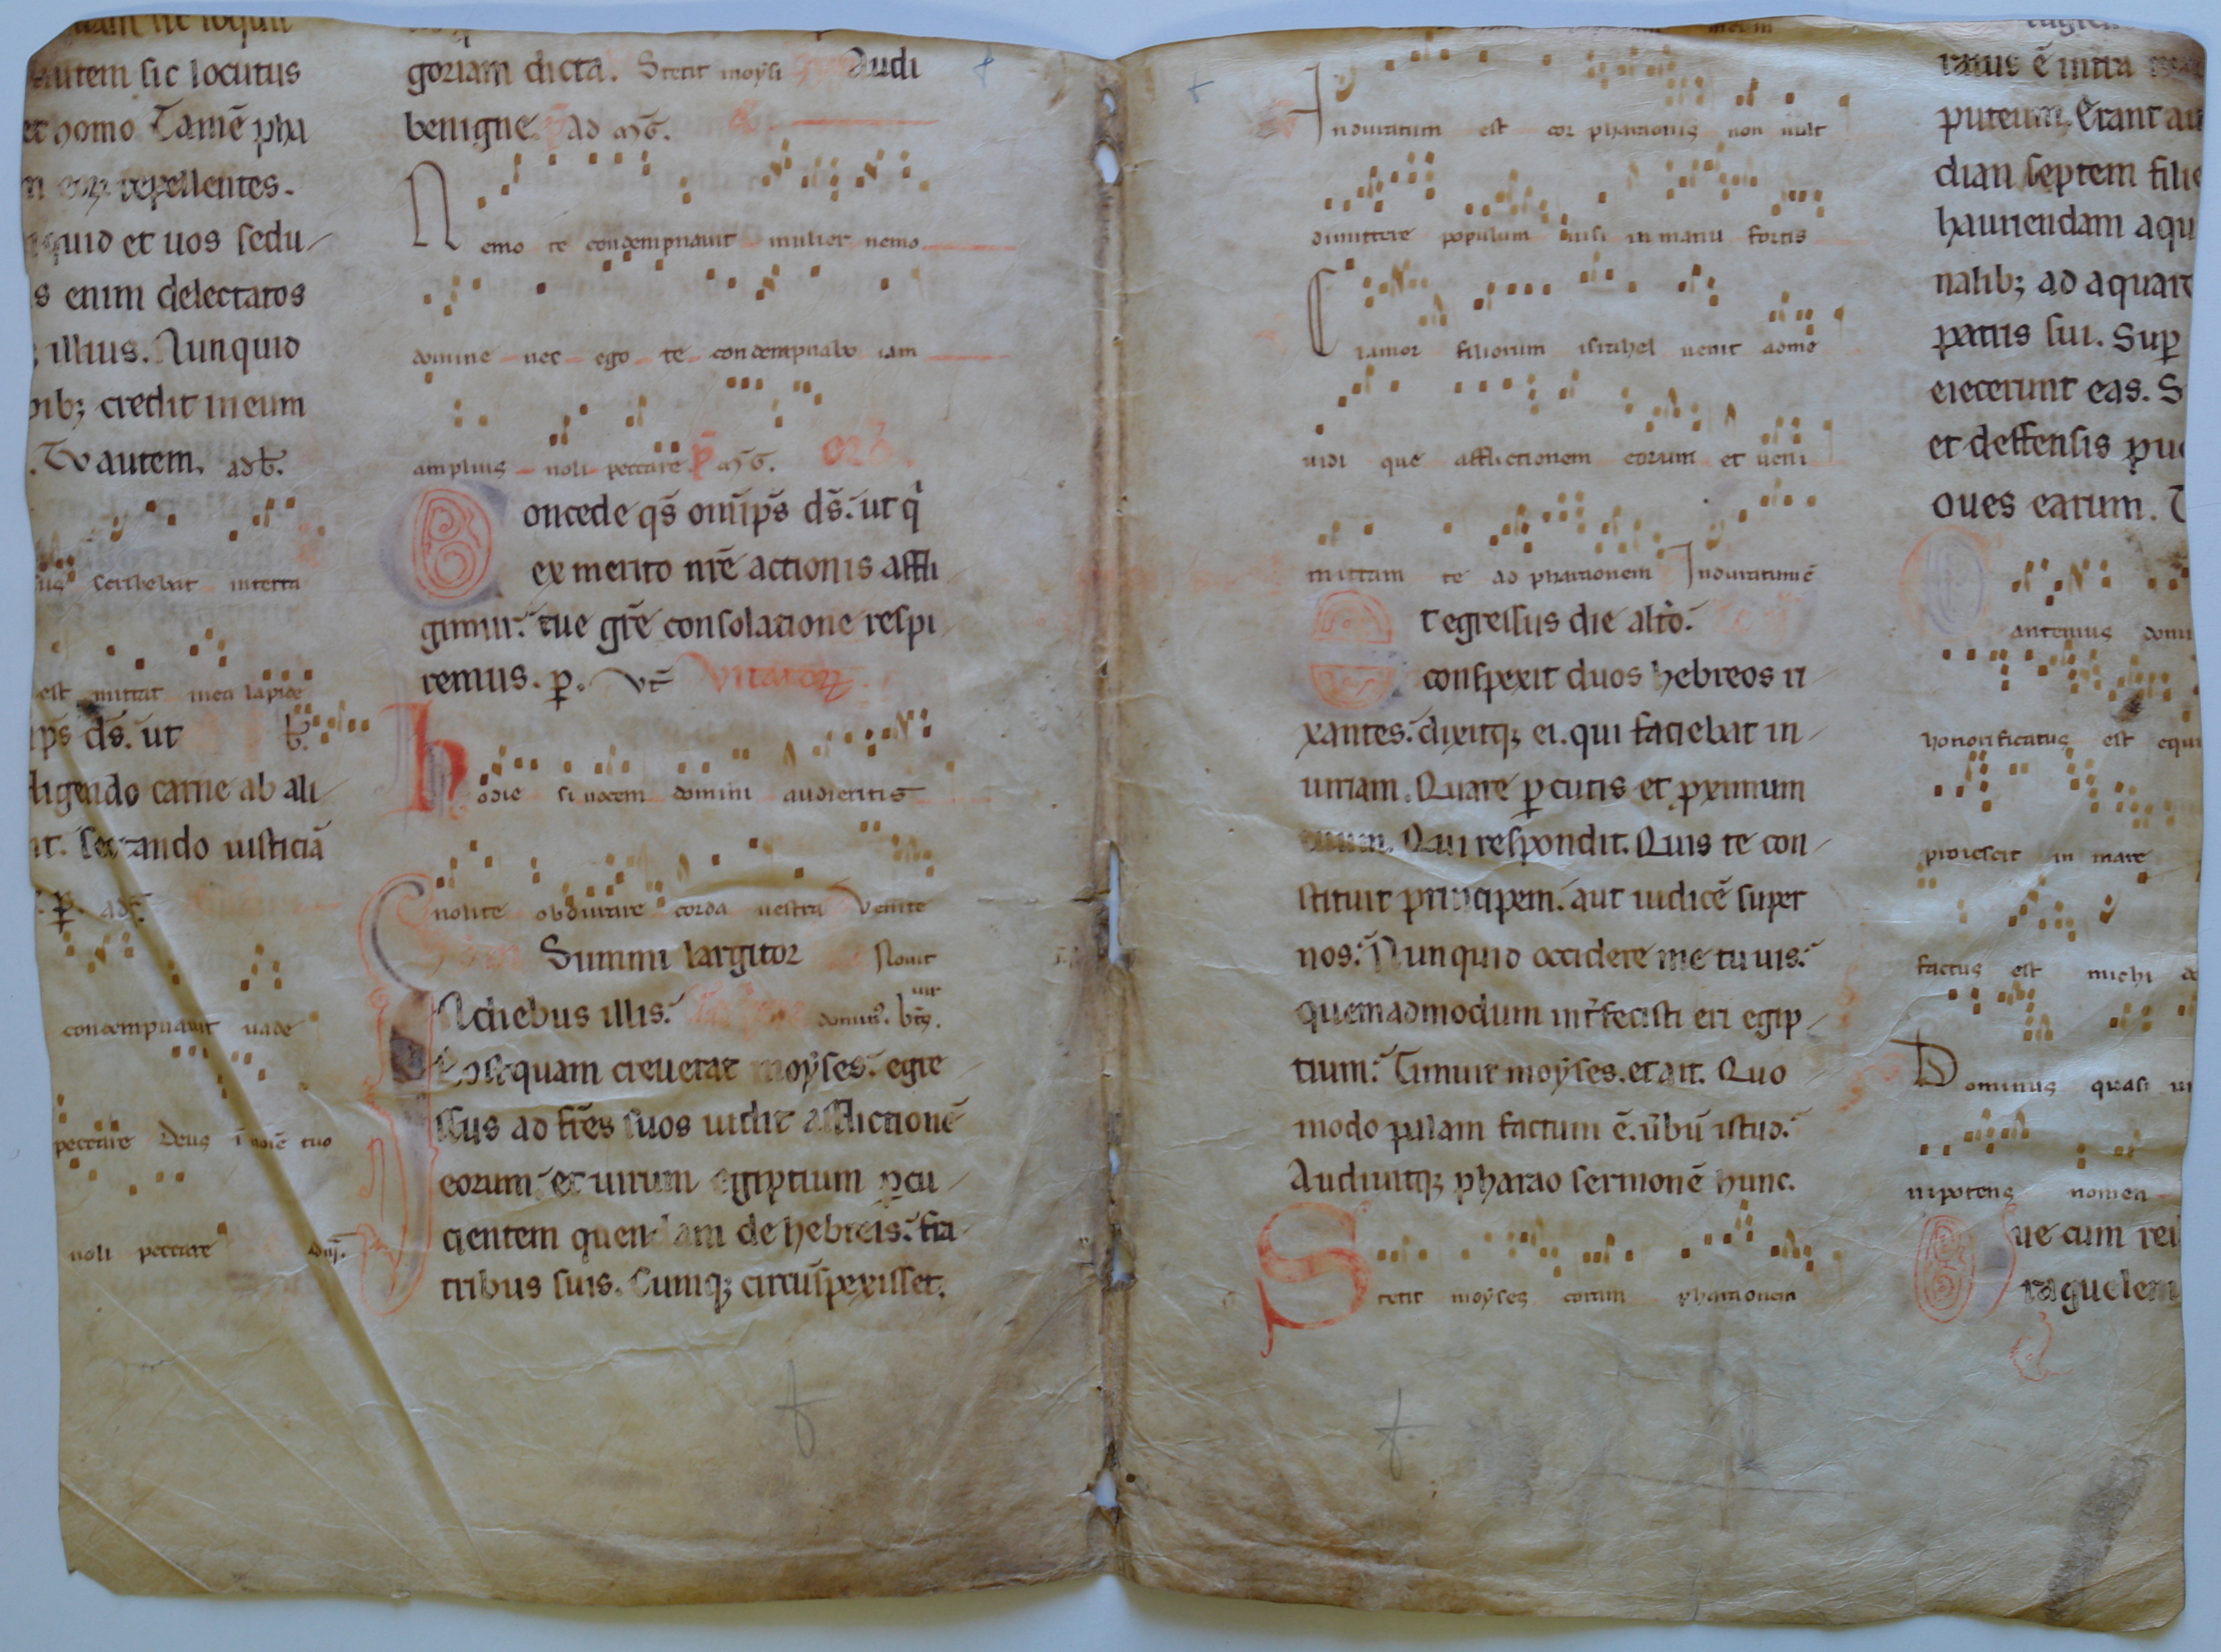 autem sic locutus
et homo. Tamē pha
repellentes.
quid et uos sedu
s enim delectatos
illius. Nunquid
pib; credit in eum
. Tu autem. ad b̄.
us scribebat in terra
est mittat in ea lapidē
ip̄s ds̄. ut
ligendo carne ab ali
nt. sectando iusticiā
condempnauit uade
peccare Deus ī noīe tuo
noli peccare
goriam dicta. Stetit moẏsi Audi
benigne ad
Nemo te condempnauit mulier nemo
domine nec ego te condempnabo iam
amplius noli peccare
Concede qs̄ om̄ip̄s ds̄. ut q
ex merito nr̄ē actionis affli
gimur. tue gr̄ē consolatione respi
remus. p.
hodie si uocem domini audieritis
nolite obdurare corda uestra Venite
Summi largitor
In diebus illis.
Postquam creuerat moẏses. egre
ssus ad fr̄es suos uidit afflictionē
eorum et uirum egiptium pcu
cientem quendam de hebreis. fra
tribus suis. Cumq; circūspexisset.
Induratum est cor pharaonis non uult
dimittere populum nisi in manu fortis
Clamor filiorum israhel uenit ad me
uidi que afflictionem eorum et ueni
mittam te ad pharaonem Induratum ē
Et egressus die altō.
conspexit duos hebreos ri
xantes. dixitq; ei. qui faciebat in
iuriam. Quare pcutis et pximum
tuum. Qui respondit. Quis te con
stituit principem. aut iudicē super
nos. Nunquid occidere me tu uis.
quemadmodum int̄fecisti eri egip
tium. Timuit moẏses. et ait. Quo
modo palam factum ē. ūbū istud.
Audiuitq; pharao sermonē hunc.
Stetit moẏses coram pharaonem
ratus ē iuxta
puteum. Erant au
dian septem filie
hauriendam aqu
nalib; ad aquare
patris sui. Sup
eiecerunt eas. S
et deffensis pue
oues earum. T
Cantemus domi
honorificatus est equ
proiescit in mare
factus est michi
Dominus quasi ui
nipotens nomen
Que cum reu
raguelem